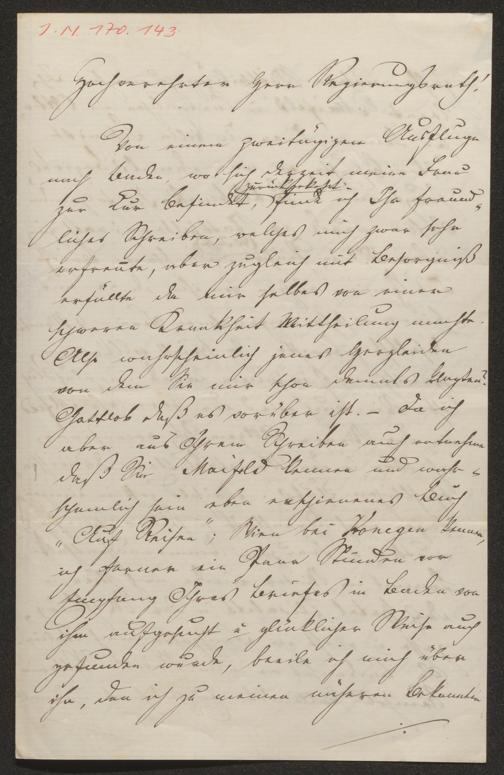 J. N. 170.143
Hochverehrter Herr Regierungsrath!
Von einem zweitägigen Ausfluge
nach Baden, wo sich derzeit meine Frau
zurückgekehrt
zur Kur befindet, finde ich Ihr freund-
liches Schreiben, welches mich zwar sehr
erfreute, aber zugleich mit Besorgniß
erfüllte da mir selbes von einer
schweren Krankheit Mittheilung machte.
Also wahrscheinlich jenes Herzleiden
von dem Sie mir schon damals klagten?
Gottlob daß es vorüber ist. – Da ich
aber aus Ihrem Schreiben auch entnehme
daß Sie Maifeld kennen und wahr-
scheinlich sein eben erschienenes Buch
„Auf Reisen"; Wien bei Konegen kennen,
ich ferner ein Paar Stunden vor
Empfang Ihres Briefes in Baden von
ihm aufgesucht u glücklicher Weise auch
gefunden wurde, beeile ich mich über
ihn, den ich zu meinen näheren Bekannten